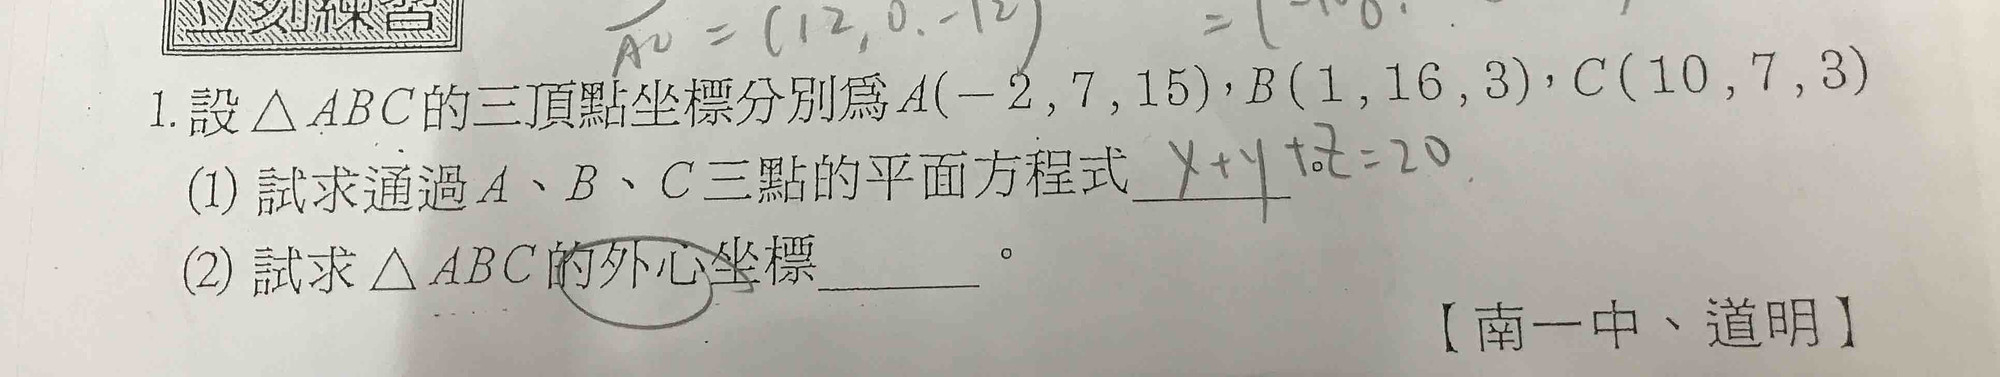 立刻練習
AC = (12, 0, -12)
1. 設△ABC的三頂點坐標分別為A(−2,7,15),B(1,16,3),C(10,7,3)
(1) 試求通過A、B、C三點的平面方程式 x+y+z=20
(2) 試求△ABC的外心坐標______。
【南一中、道明】